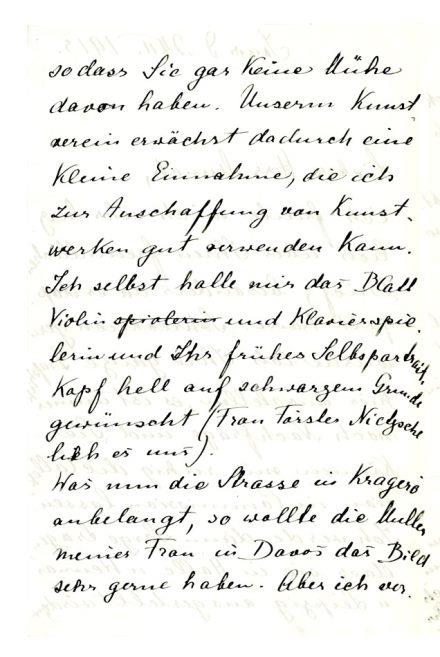 sodass Sie gar keine Mühe
davon haben. Unserm Kunst
verein erwächst dadurch eine
kleine Einnahme, die ich
zur Anschaffung von Kunst-
werken gut verwenden kann.
Ich selbst hatte mir das Blatt
Violinspielerin und Klavierspie-
lerin und Ihr frühes Selbsportrait,
Kopf hell auf schwarzem Grunde
gewünscht (Frau Förster Nietzsche
lieh es uns).
Was nun die Strasse in Kragerö
anbelangt, so wollte die Mutter
meiner Frau in Davos das Bild
sehr gerne haben. Aber ich ver-